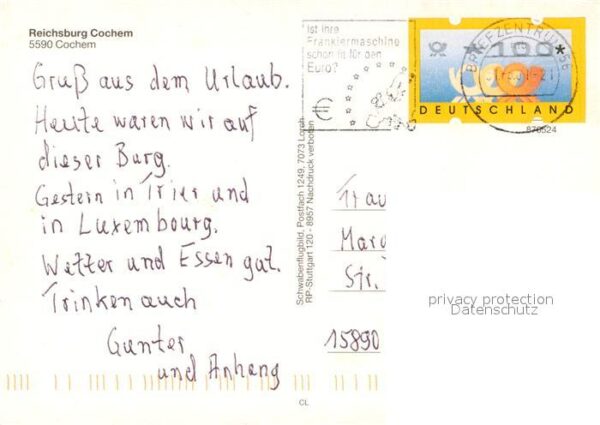 Reichsburg Cochem
5590 Cochem
Gruß aus dem Urlaub.
Heute waren wir auf
dieser Burg.
Gestern in Trier und
in Luxembourg.
Wetter und Essen gut.
Trinken auch
Gunter
und Anhang
Schwabenflugbild, Postfach 1249, 7073 Lorch
RP-Stuttgart 120 - 8957 Nachdruck verboten
CL
Ist Ihre
Frankiermaschine
schon fit für den
Euro?
€
*100*
BRIEFZENTRUM 56
DEUTSCHLAND
870524
Trau
Marg
Str.
15890
privacy protection
Datenschutz